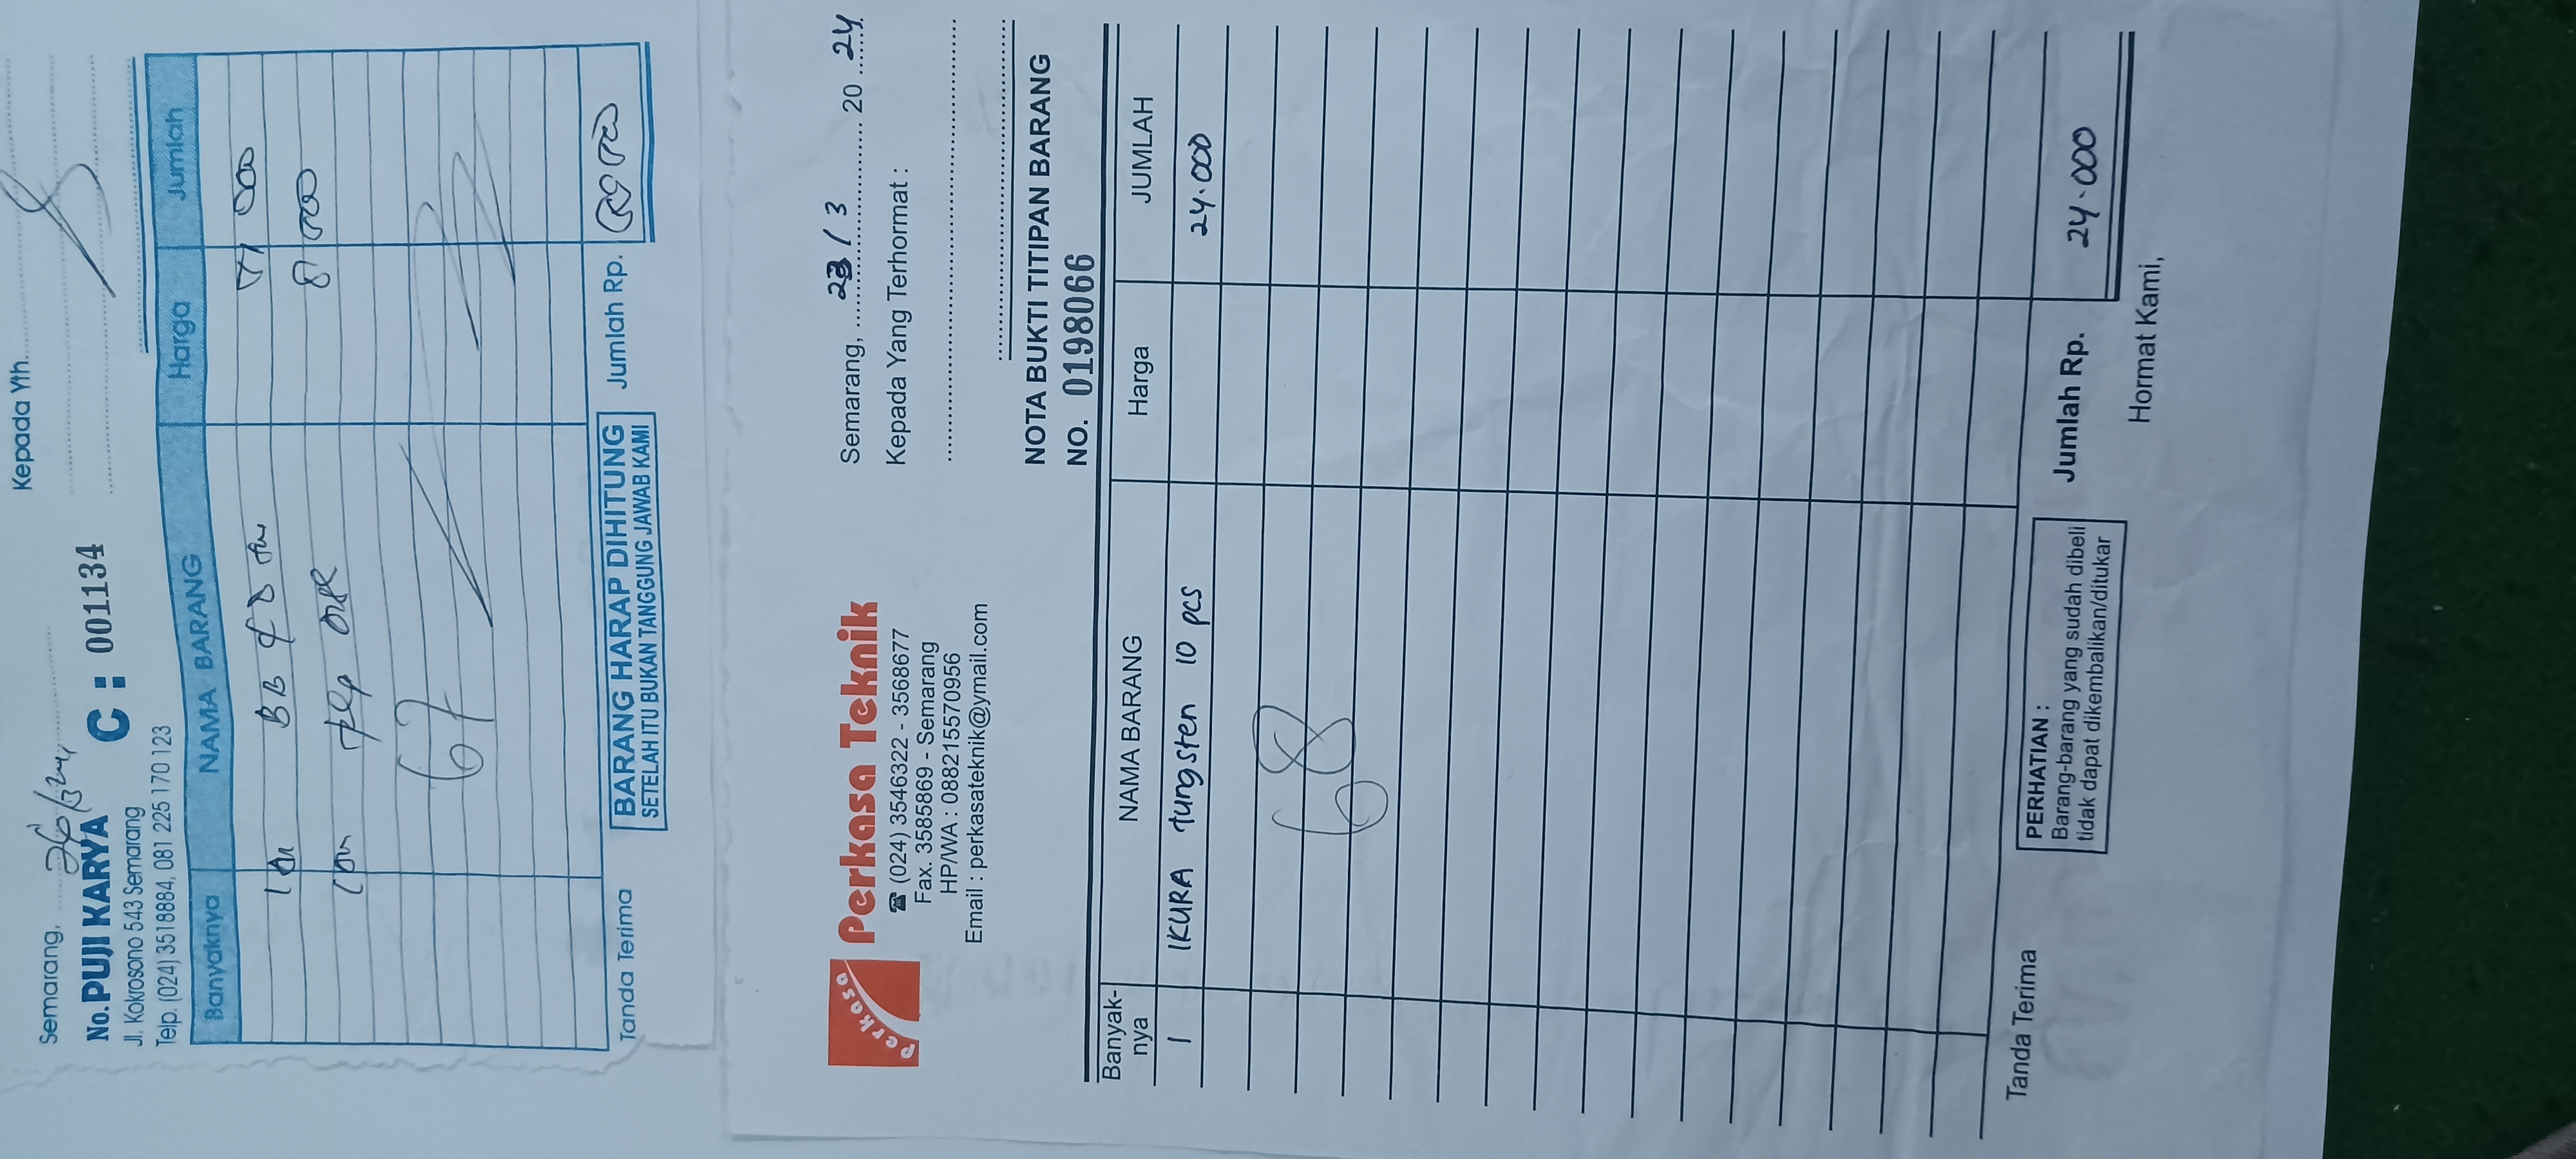 Semarang,
Kepada Yth.
No. PUJI KARYA C : 001134
Jl. Kokrosono 543 Semarang
Telp. (024) 3518884, 081 225 170 123
Banyaknya NAMA BARANG Harga Jumlah
8 000
67
Tanda Terima
BARANG HARAP DIHITUNG
SETELAH ITU BUKAN TANGGUNG JAWAB KAMI
Jumlah Rp.
perkasa
Perkasa Teknik
☎ (024) 3546322 - 3568677
Fax. 3585869 - Semarang
HP/WA : 088215570956
Email : perkasateknik@ymail.com
Semarang, 23 / 3 20 24
Kepada Yang Terhormat :
NOTA BUKTI TITIPAN BARANG
NO. 0198066
Banyak-
nya NAMA BARANG Harga JUMLAH
1 IKURA tungsten 10 pcs 24.000
68
Tanda Terima
PERHATIAN :
Barang-barang yang sudah dibeli
tidak dapat dikembalikan/ditukar
Jumlah Rp. 24.000
Hormat Kami,